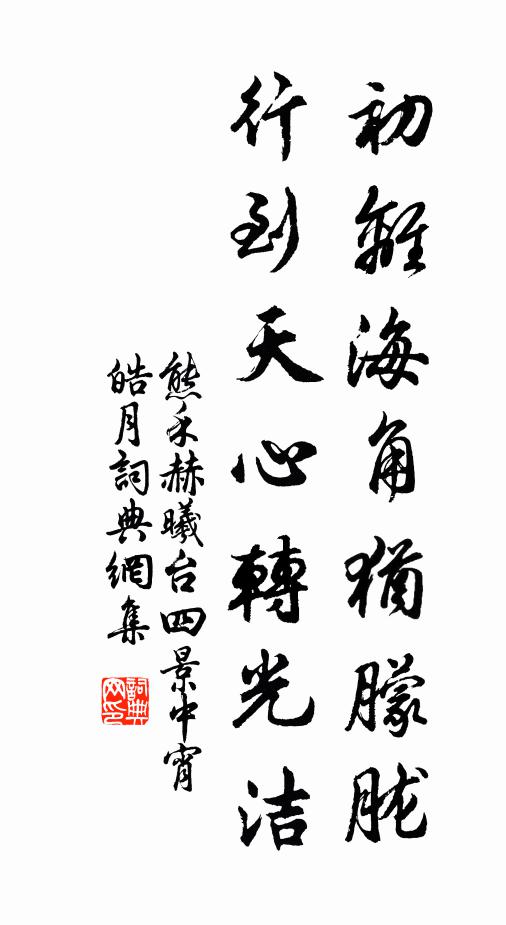 初離海角猶朦朧
行到天心轉光洁
熊禾赫曦台四景中宵
皓月詞典網集
詞典網印